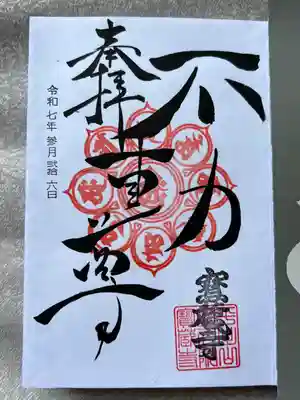 奉拝
不動尊
寳蔵寺
令和 七年 参月 弐拾 六日